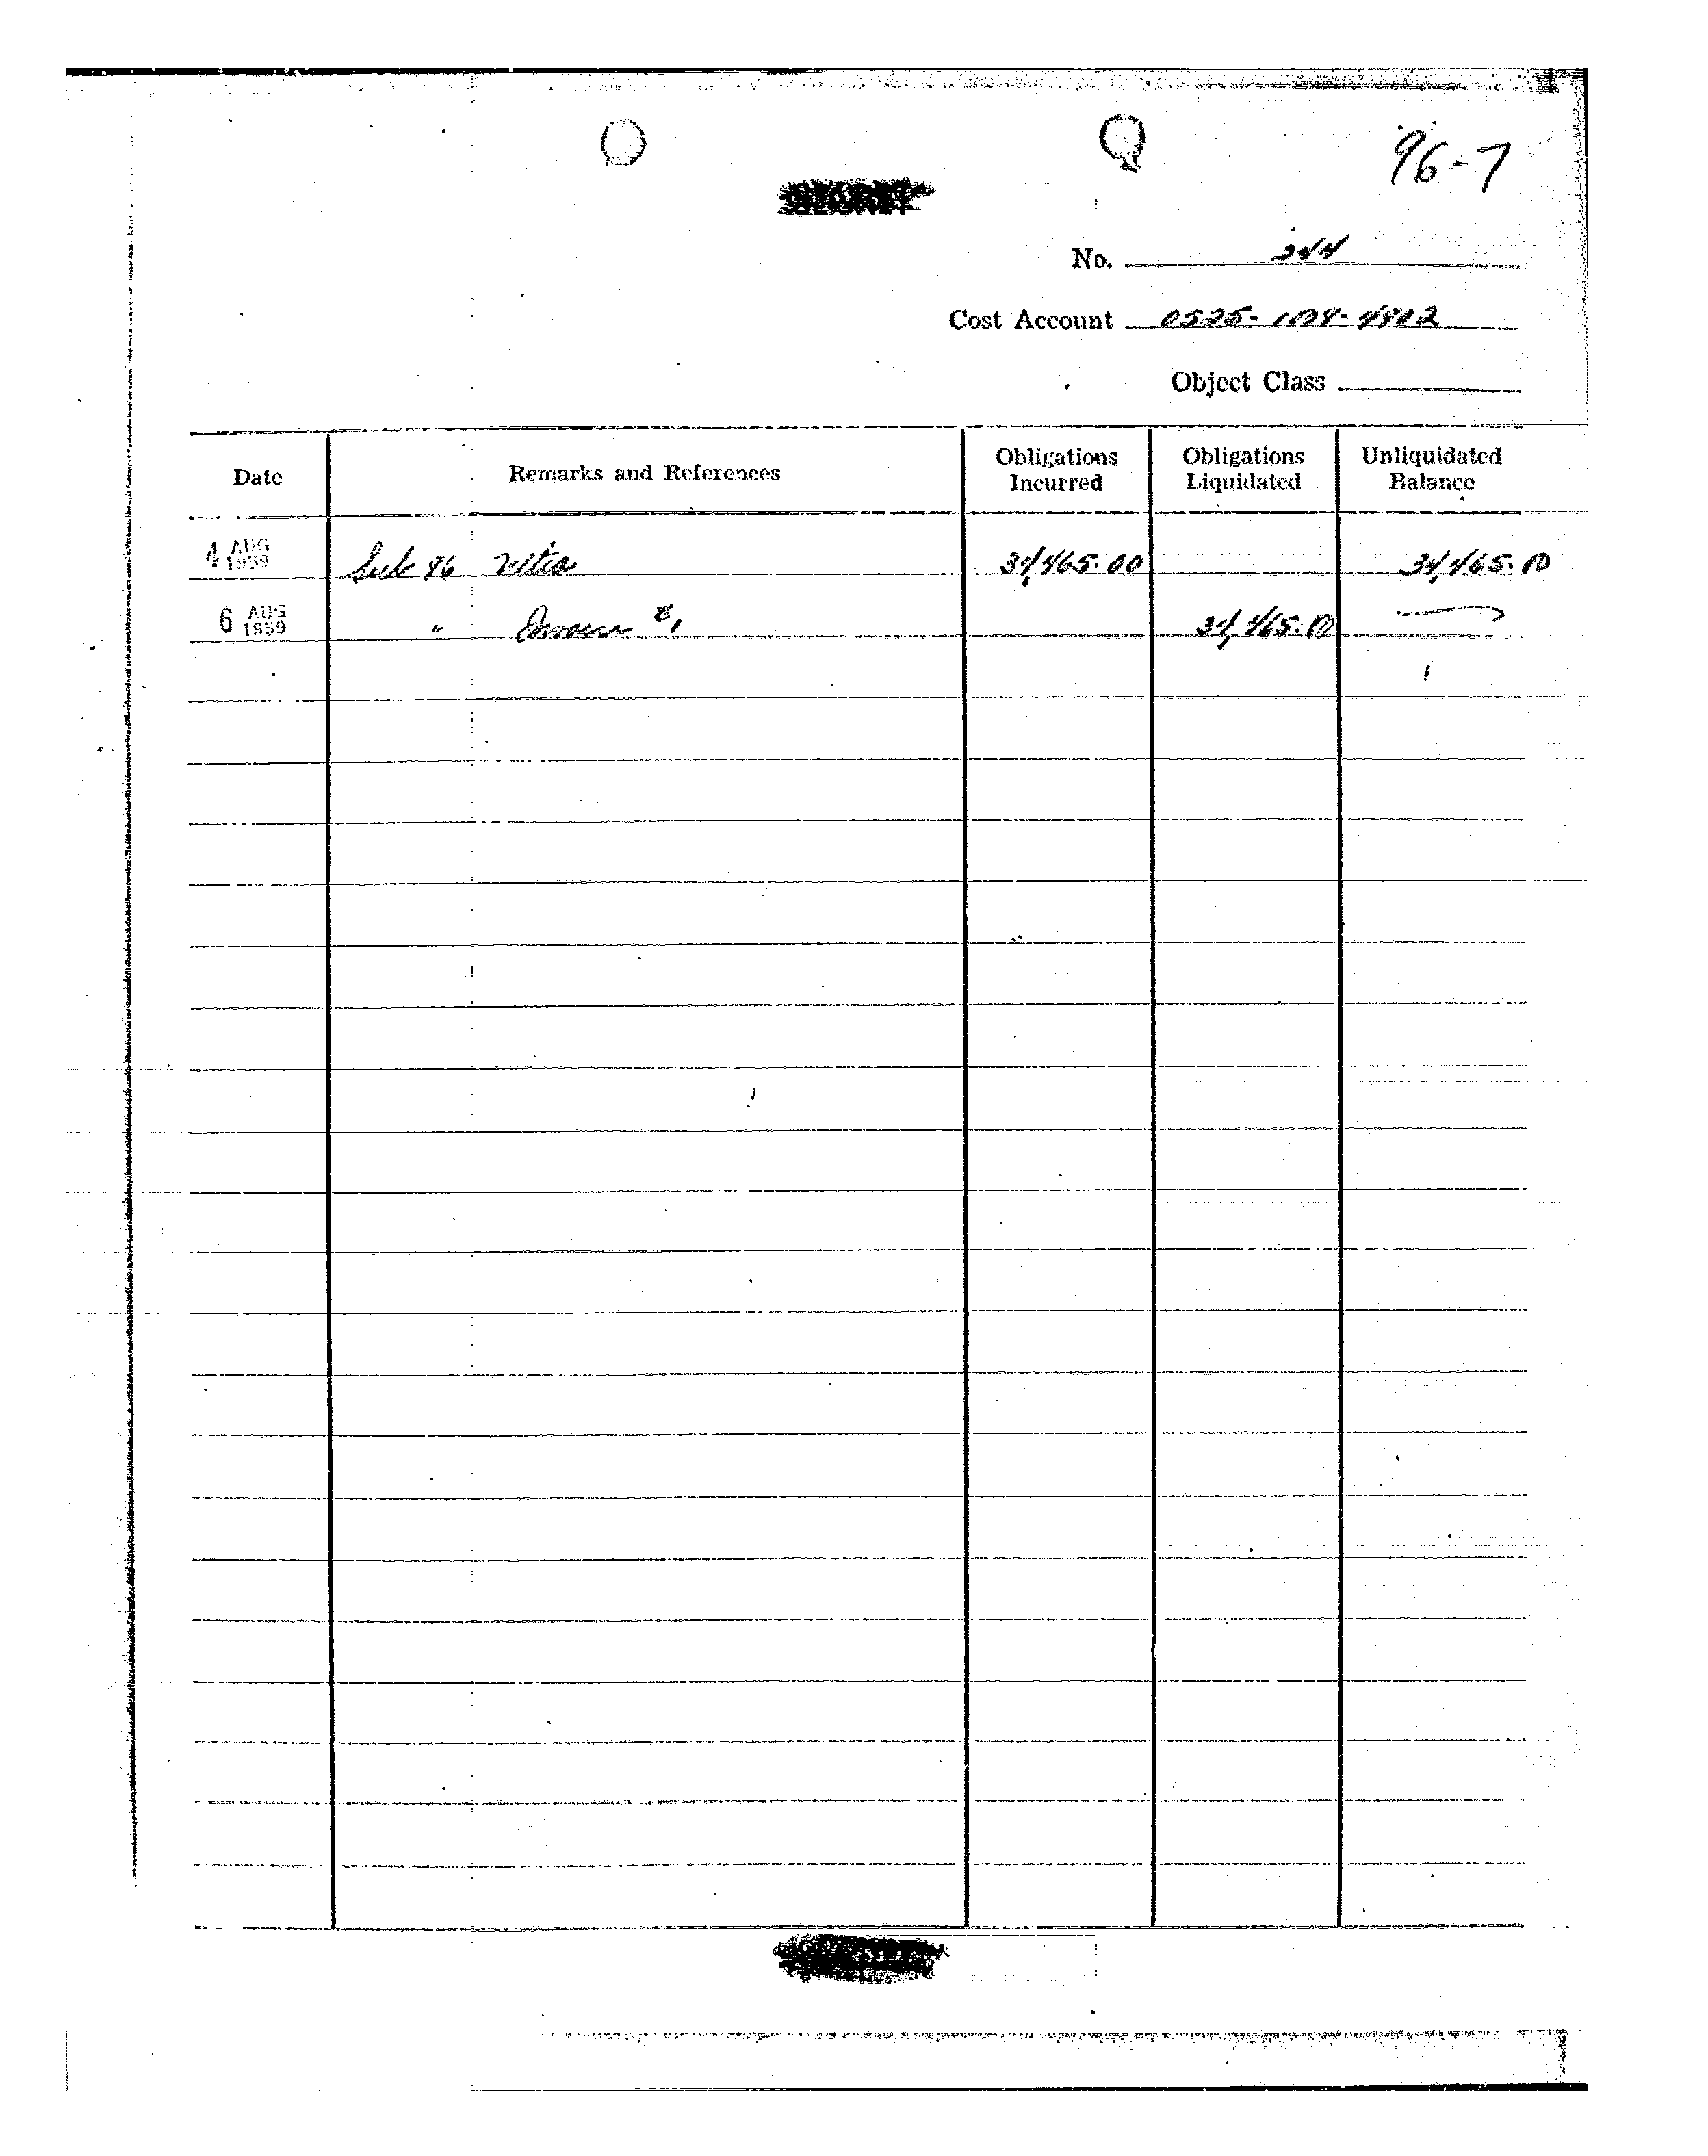 96-7
No. 344
Cost Account 0525-1009-4902
Object Class
Date Remarks and References Obligations Incurred Obligations Liquidated Unliquidated Balance
4 AUG 1959 Sub 96 34,465.00 34,465.00
6 AUG 1959 " Invoice #1 34,465.00